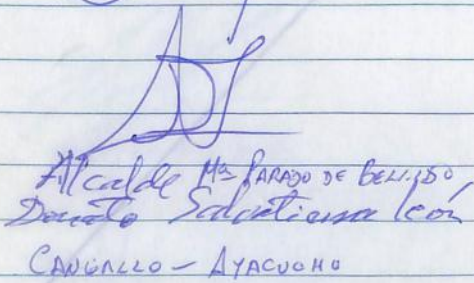 Alcalde Mª PARADO DE BELLIDO
Donato León
CANGALLO - AYACUCHO